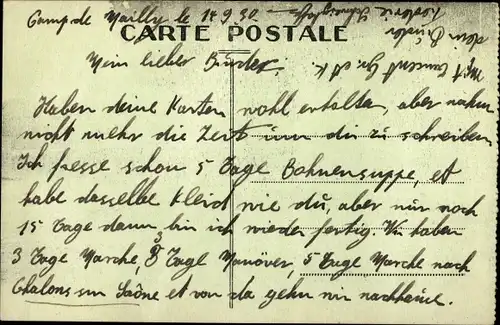 Camp de Mailly le 14.9.30.
CARTE POSTALE
Mein lieber Bruder.
Haben deine Karten wohl erhalten, aber nahm
nicht mehr die Zeit um dir zu schreiben
Ich fresse schon 5 Tage Bohnensuppe, et
habe dasselbe Kleid wie du, aber nur noch
15 Tage dann bin ich wieder fertig. Wir haben
3 Tage Marche, 8 Tage Manöver, 5 Tage Marche nach
Chalons sur Saône et von da gehn wir nachhause.
dein Bruder